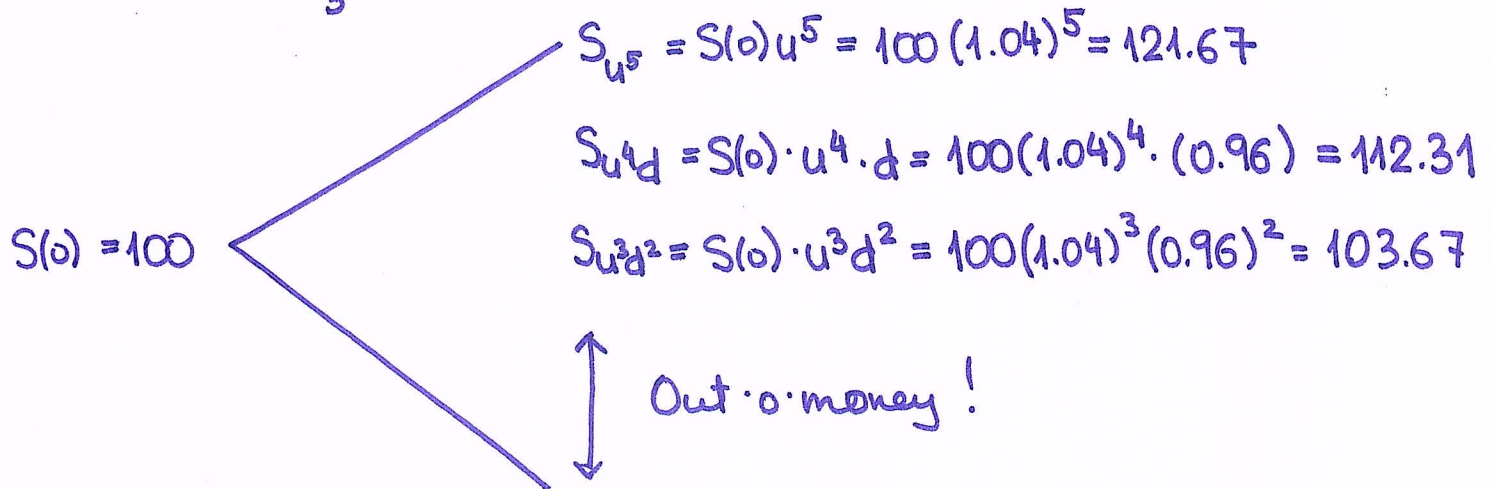 S_{u^5} = S(0)u^5 = 100(1.04)^5 = 121.67
S_{u^4d} = S(0)·u^4·d = 100(1.04)^4·(0.96) = 112.31
S(0) = 100
S_{u^3d^2} = S(0)·u^3d^2 = 100(1.04)^3(0.96)^2 = 103.67
Out·o·money!